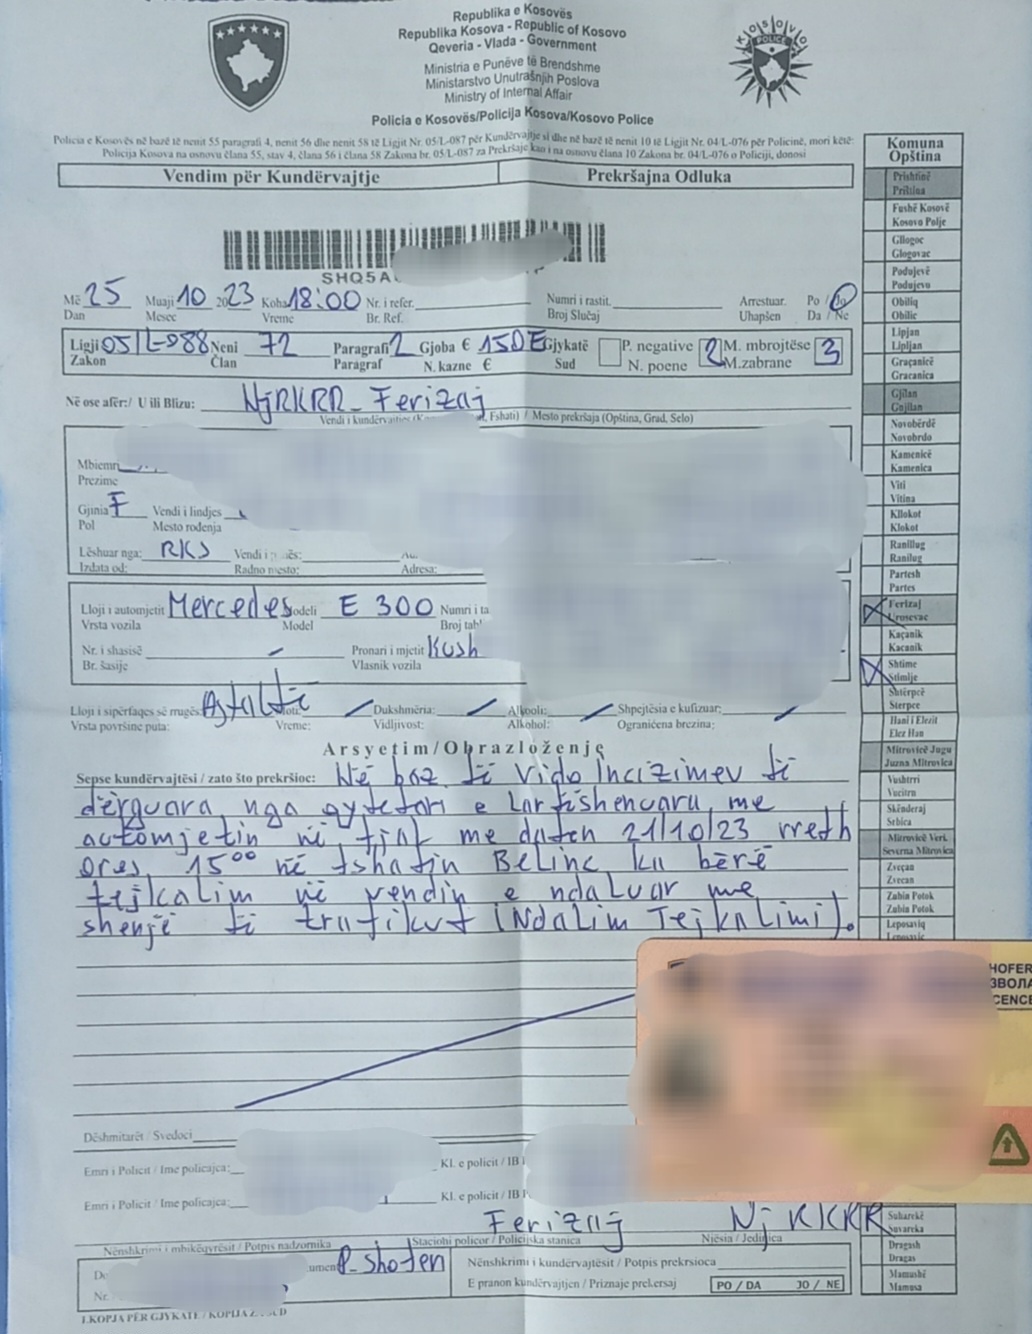 Republika e Kosovës
Republika Kosova - Republic of Kosovo
Qeveria - Vlada - Government
Ministria e Punëve të Brendshme
Ministarstvo Unutrašnjih Poslova
Ministry of Internal Affair
Policia e Kosovës/Policija Kosova/Kosovo Police
KOSOVO
POLICE
Policia e Kosovës në bazë të nenit 55 paragrafi 4, nenit 56 dhe nenit 58 të Ligjit Nr. 05/L-087 për Kundërvajtje si dhe në bazë të nenit 10 të Ligjit Nr. 04/L-076 për Policinë, mori këtë:
Policija Kosova na osnovu člana 55, stav 4, člana 56 i člana 58 Zakona br. 05/L-087 za Prekršaje kao i na osnovu člana 10 Zakona br. 04/L-076 o Policiji, donosi
Vendim për Kundërvajtje Prekršajna Odluka
SHQ5A
Më 25 Muaji 10 2023 Koha 18:00 Nr. i refer. Numri i rastit. Arrestuar. Po / Jo
Dan Mesec Vreme Br. Ref. Broj Slučaj Uhapšen Da / Ne
Ligji 05/L-088 Neni 72 Paragrafi 2 Gjoba € 150€ Gjykatë P. negative 2 M. mbrojtëse 3
Zakon Član Paragraf N. kazne € Sud N. poene M.zabrane
Në ose afër:/ U ili Blizu: NjRKRR_Ferizaj
Vendi i kundërvajtjes Fshati) / Mesto prekršaja (Opština, Grad, Selo)
Mbiemri
Prezime
Gjinia F Vendi i lindjes
Pol Mesto rođenja
Lëshuar nga: RKS Vendi i
Izdata od: Radno mesto: Adresa:
Lloji i automjetit Mercedes Modeli E 300 Numri i ta
Vrsta vozila Model Broj tab
Nr. i shasisë Pronari i mjetit Kush
Br. šasije Vlasnik vozila
Lloji i sipërfaqes së rrugës Asfaltë Moti: Dukshmëria: Alkooli: Shpejtësia e kufizuar:
Vrsta površine puta: Vreme: Vidljivost: Alkohol: Ograničena brezina:
Arsyetim/Obrazloženje
Sepse kundërvajtësi / zato što prekršioc: Në baz të vido incizimev të
dërguara nga qytetari e lartëshenuaru me
automjetin në fjal me daten 21/10/23 rreth
Ores 15⁰⁰ në fshatin Belinc ka bërë
tejkalim në vendin e ndaluar me
shenjë të trafikut (Ndalim Tejkalimi).
Dëshmitarët / Svedoci
Emri i Policit / Ime policajca: Kl. e policit / IB
Emri i Policit / Ime policajca: Kl. e policit / IB
Ferizaj NjRKKR
Nënshkrimi i mbikëqyrësit / Potpis nadzornika Stacioni policor / Policijska stanica Njësia / Jedinica
P_shofen Nënshkrimi i kundërvajtësit / Potpis prekrsioca
Nr. E pranon kundërvajtjen / Priznaje prekersaj PO / DA JO / NE
I.KOPJA PËR GJYKATË / KOPIJA
Komuna
Opština
Prishtinë
Priština
Fushë Kosovë
Kosovo Polje
Gllogoc
Glogovac
Podujevë
Podujevo
Obiliq
Obilic
Lipjan
Lipljan
Graçanicë
Gracanica
Gjilan
Gnjilan
Novobërdë
Novobrdo
Kamenicë
Kamenica
Viti
Vitina
Kllokot
Klokot
Ranillug
Ranilug
Partesh
Partes
Ferizaj
Urosevac
Kaçanik
Kacanik
Shtime
Stimlje
Shtërpcë
Sterpce
Hani i Elezit
Elez Han
Mitrovicë Jugu
Juzna Mitrovica
Vushtrri
Vucitrn
Skënderaj
Srbica
Mitrovicë Veri.
Severna Mitrovica
Zveçan
Zvecan
Zubin Potok
Zubin Potok
Leposaviq
HOFER
ЗВОЛА
CENCE
Suharekë
Suvareka
Dragash
Dragas
Mamushë
Mamusa